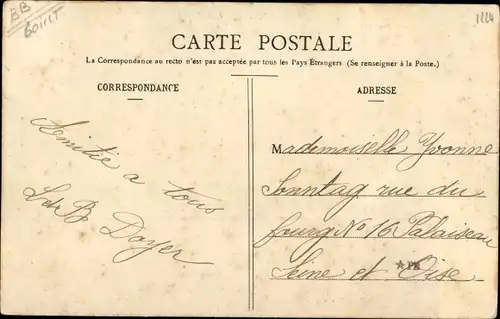 BB
Loiret
1224
CARTE POSTALE
La Correspondance au recto n'est pas acceptée par tous les Pays Étrangers (Se renseigner à la Poste.)
CORRESPONDANCE
Amitie a tous
B Doyer
ADRESSE
Mademoiselle Yvonne
Sonntag rue du
fourg No 16 Palaiseau
Seine et Oise